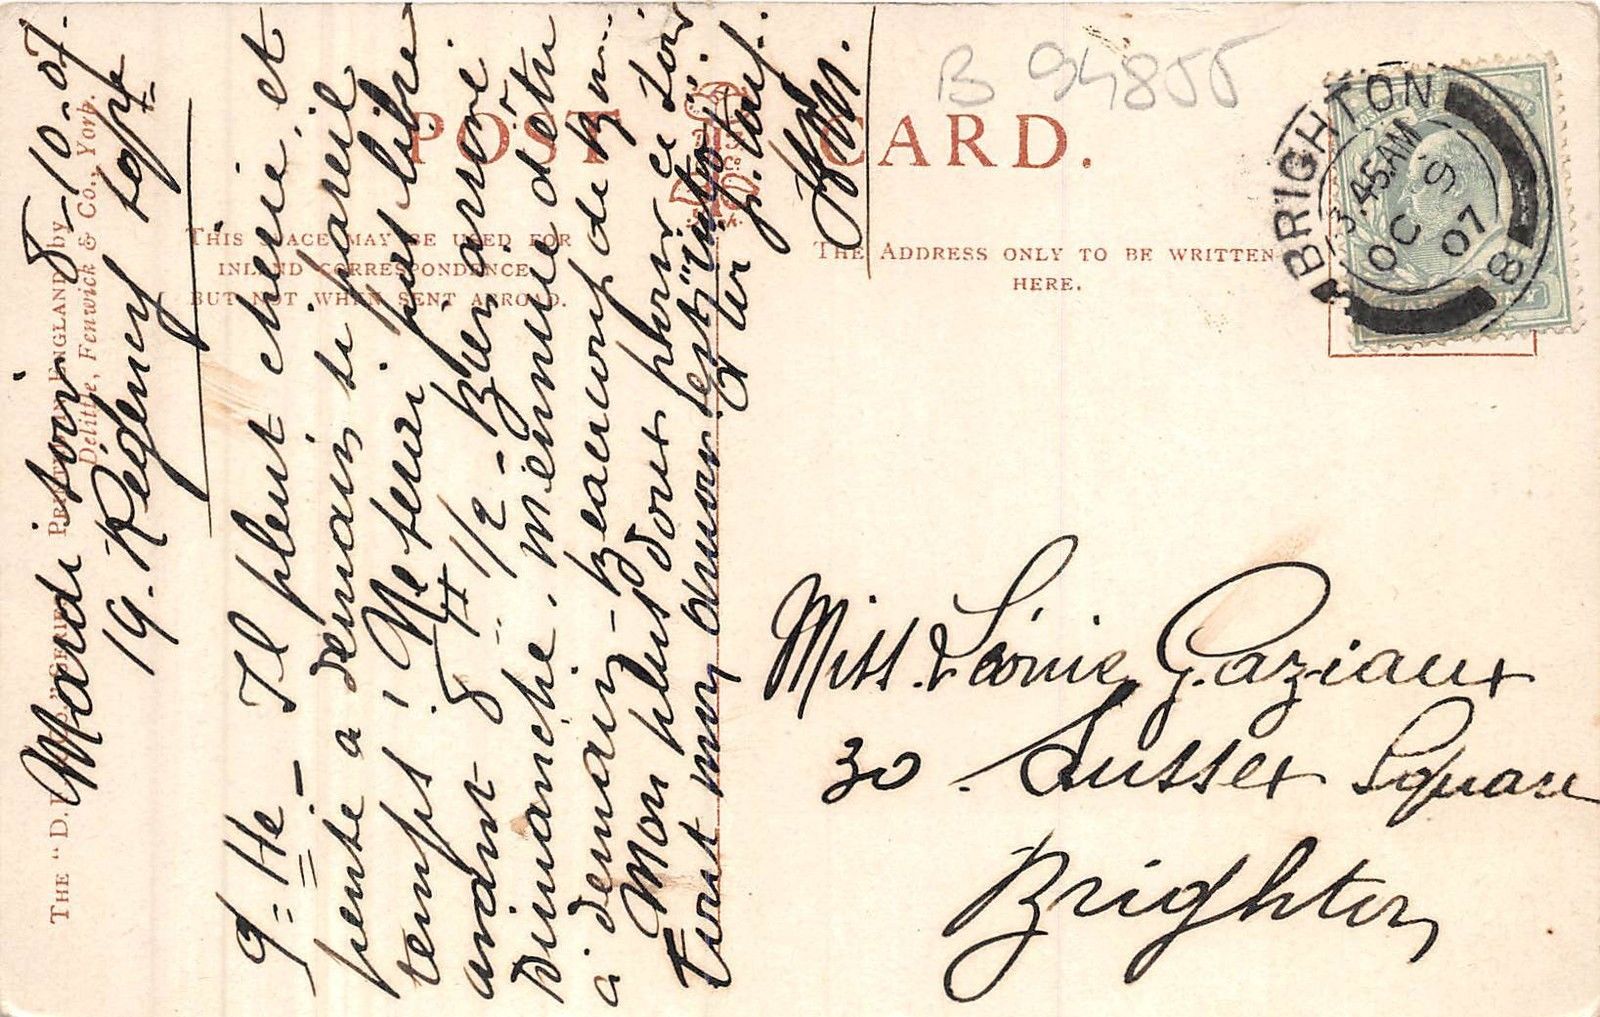 Mardi soir 8-10-07.
19. Regency
9. He. – Il pleut chérie, et
pense à demain si pareil
temps! Ne serai pas libre
avant 8 H 1/2 – Bien arrivé
Dimanche. mennuie d'être
à demain – Beaucoup de
Mon plus doux pour ce soir
Tout mon amour est
B 94855
POST CARD.
THIS SPACE MAY BE USED FOR
INLAND CORRESPONDENCE
BUT NOT WHEN SENT ABROAD.
THE ADDRESS ONLY TO BE WRITTEN
HERE.
BRIGHTON
3.45AM
OC 9
07
8
Miss. Léonie Gaziaux
30. Sussex Square
Brighton
THE "D.F." SERIES PRINTED IN ENGLAND by
Delittle, Fenwick & Co., York.